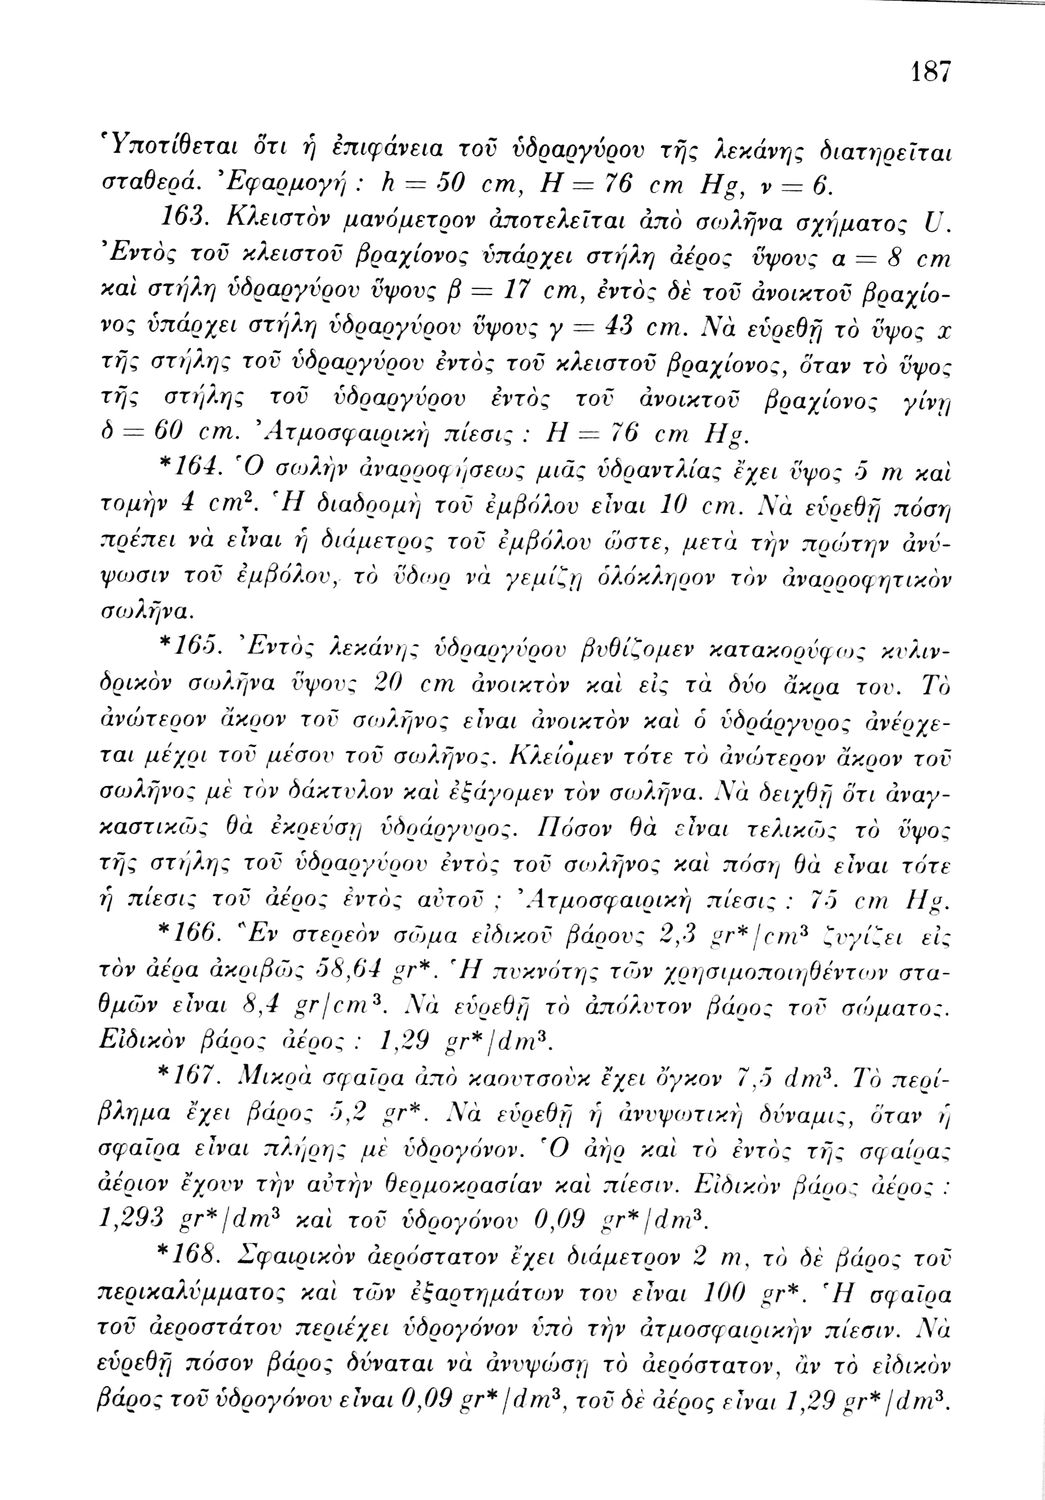 187
Ὑποτίθεται ὅτι ἡ ἐπιφάνεια τοῦ ὑδραργύρου τῆς λεκάνης διατηρεῖται
σταθερά. Ἐφαρμογή : h = 50 cm, H = 76 cm Hg, ν = 6.
163. Κλειστὸν μανόμετρον ἀποτελεῖται ἀπὸ σωλῆνα σχήματος U.
Ἐντὸς τοῦ κλειστοῦ βραχίονος ὑπάρχει στήλη ἀέρος ὕψους α = 8 cm
καὶ στήλη ὑδραργύρου ὕψους β = 17 cm, ἐντὸς δὲ τοῦ ἀνοικτοῦ βραχίο-
νος ὑπάρχει στήλη ὑδραργύρου ὕψους γ = 43 cm. Νὰ εὑρεθῇ τὸ ὕψος x
τῆς στήλης τοῦ ὑδραργύρου ἐντὸς τοῦ κλειστοῦ βραχίονος, ὅταν τὸ ὕψος
τῆς στήλης τοῦ ὑδραργύρου ἐντὸς τοῦ ἀνοικτοῦ βραχίονος γίνῃ
δ = 60 cm. Ἀτμοσφαιρικὴ πίεσις : H = 76 cm Hg.
*164. Ὁ σωλὴν ἀναρροφήσεως μιᾶς ὑδραντλίας ἔχει ὕψος 5 m καὶ
τομὴν 4 cm². Ἡ διαδρομὴ τοῦ ἐμβόλου εἶναι 10 cm. Νὰ εὑρεθῇ πόση
πρέπει νὰ εἶναι ἡ διάμετρος τοῦ ἐμβόλου ὥστε, μετὰ τὴν πρώτην ἀνύ-
ψωσιν τοῦ ἐμβόλου, τὸ ὕδωρ νὰ γεμίζῃ ὁλόκληρον τὸν ἀναρροφητικὸν
σωλῆνα.
*165. Ἐντὸς λεκάνης ὑδραργύρου βυθίζομεν κατακορύφως κυλιν-
δρικὸν σωλῆνα ὕψους 20 cm ἀνοικτὸν καὶ εἰς τὰ δύο ἄκρα του. Τὸ
ἀνώτερον ἄκρον τοῦ σωλῆνος εἶναι ἀνοικτὸν καὶ ὁ ὑδράργυρος ἀνέρχε-
ται μέχρι τοῦ μέσου τοῦ σωλῆνος. Κλείομεν τότε τὸ ἀνώτερον ἄκρον τοῦ
σωλῆνος μὲ τὸν δάκτυλον καὶ ἐξάγομεν τὸν σωλῆνα. Νὰ δειχθῇ ὅτι ἀναγ-
καστικῶς θὰ ἐκρεύσῃ ὑδράργυρος. Πόσον θὰ εἶναι τελικῶς τὸ ὕψος
τῆς στήλης τοῦ ὑδραργύρου ἐντὸς τοῦ σωλῆνος καὶ πόση θὰ εἶναι τότε
ἡ πίεσις τοῦ ἀέρος ἐντὸς αὐτοῦ ; Ἀτμοσφαιρικὴ πίεσις : 75 cm Hg.
*166. Ἓν στερεὸν σῶμα εἰδικοῦ βάρους 2,3 gr*/cm³ ζυγίζει εἰς
τὸν ἀέρα ἀκριβῶς 58,64 gr*. Ἡ πυκνότης τῶν χρησιμοποιηθέντων στα-
θμῶν εἶναι 8,4 gr/cm³. Νὰ εὑρεθῇ τὸ ἀπόλυτον βάρος τοῦ σώματος.
Εἰδικὸν βάρος ἀέρος : 1,29 gr*/dm³.
*167. Μικρὰ σφαῖρα ἀπὸ καουτσοὺκ ἔχει ὄγκον 7,5 dm³. Τὸ περί-
βλημα ἔχει βάρος 5,2 gr*. Νὰ εὑρεθῇ ἡ ἀνυψωτικὴ δύναμις, ὅταν ἡ
σφαῖρα εἶναι πλήρης μὲ ὑδρογόνον. Ὁ ἀὴρ καὶ τὸ ἐντὸς τῆς σφαίρας
ἀέριον ἔχουν τὴν αὐτὴν θερμοκρασίαν καὶ πίεσιν. Εἰδικὸν βάρος ἀέρος :
1,293 gr*/dm³ καὶ τοῦ ὑδρογόνου 0,09 gr*/dm³.
*168. Σφαιρικὸν ἀερόστατον ἔχει διάμετρον 2 m, τὸ δὲ βάρος τοῦ
περικαλύμματος καὶ τῶν ἐξαρτημάτων του εἶναι 100 gr*. Ἡ σφαῖρα
τοῦ ἀεροστάτου περιέχει ὑδρογόνον ὑπὸ τὴν ἀτμοσφαιρικὴν πίεσιν. Νὰ
εὑρεθῇ πόσον βάρος δύναται νὰ ἀνυψώσῃ τὸ ἀερόστατον, ἂν τὸ εἰδικὸν
βάρος τοῦ ὑδρογόνου εἶναι 0,09 gr*/dm³, τοῦ δὲ ἀέρος εἶναι 1,29 gr*/dm³.